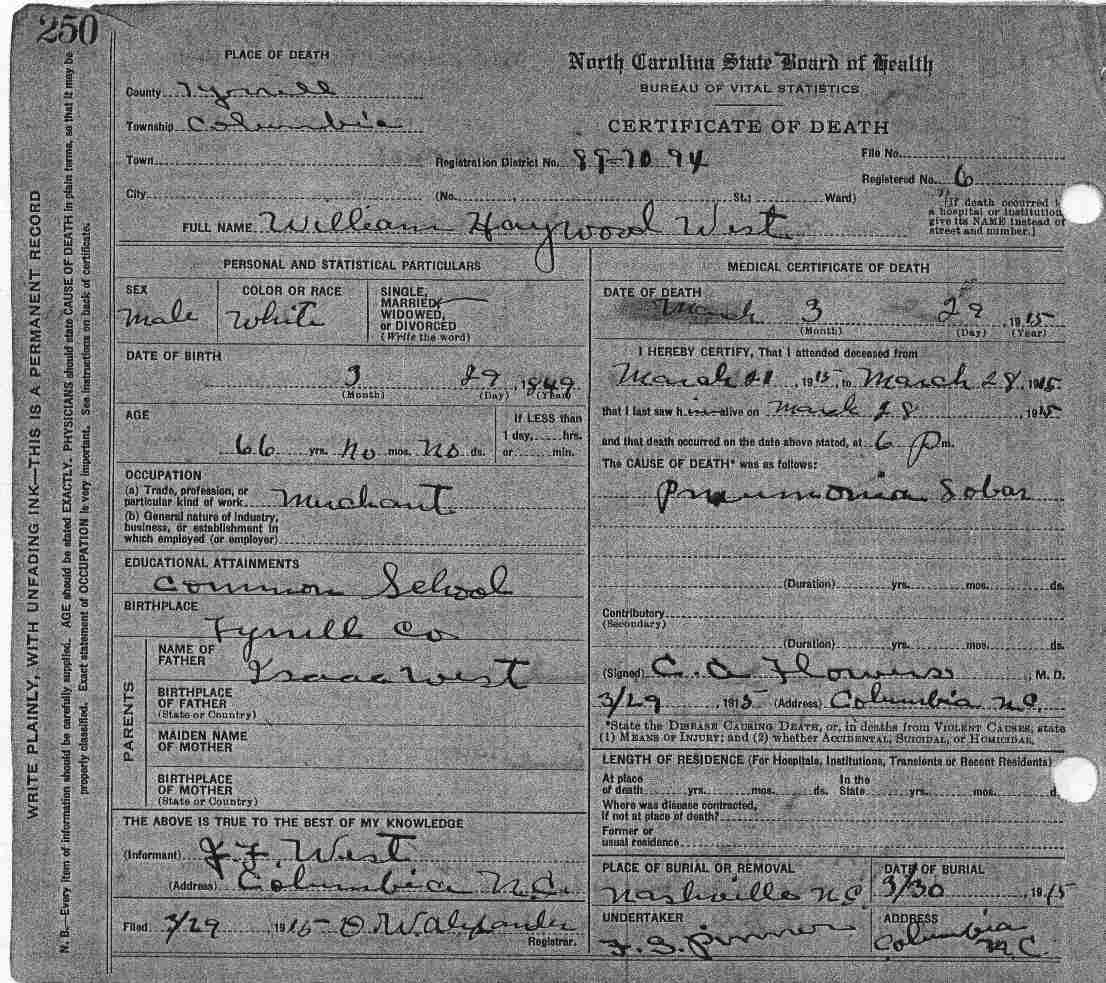 250
WRITE PLAINLY, WITH UNFADING INK—THIS IS A PERMANENT RECORD
N. B.—Every item of information should be carefully supplied. AGE should be stated EXACTLY. PHYSICIANS should state CAUSE OF DEATH in plain terms, so that it may be
properly classified. Exact statement of OCCUPATION is very important. See instructions on back of certificate.
PLACE OF DEATH
County Tyrrell
Township Columbia
Town
City
North Carolina State Board of Health
BUREAU OF VITAL STATISTICS
CERTIFICATE OF DEATH
Registration District No. 89-70 94
File No.
Registered No. 6
(No. St.; Ward)
[If death occurred
a hospital or institution
give its NAME instead of
street and number.]
FULL NAME William Haywood West
PERSONAL AND STATISTICAL PARTICULARS
SEX
Male
COLOR OR RACE
White
SINGLE,
MARRIED,
WIDOWED,
or DIVORCED
(Write the word)
DATE OF BIRTH
3 29, 1849
(Month) (Day) (Year)
AGE
66 yrs. No mos. No ds.
If LESS than
1 day, hrs.
or min.
OCCUPATION
(a) Trade, profession, or
particular kind of work Muchant
(b) General nature of industry,
business, or establishment in
which employed (or employer)
EDUCATIONAL ATTAINMENTS
Common School
BIRTHPLACE
Tyrrell Co
PARENTS
NAME OF
FATHER
Isaac West
BIRTHPLACE
OF FATHER
(State or Country)
MAIDEN NAME
OF MOTHER
BIRTHPLACE
OF MOTHER
(State or Country)
THE ABOVE IS TRUE TO THE BEST OF MY KNOWLEDGE
(Informant) J. F. West
(Address) Columbia N.C.
Filed 3/29 1915 O. W. Alexander
Registrar.
MEDICAL CERTIFICATE OF DEATH
DATE OF DEATH
March 3 29, 1915
(Month) (Day) (Year)
I HEREBY CERTIFY, That I attended deceased from
March 21, 1915, to March 28, 1915
that I last saw him alive on March 28 1915
and that death occurred on the date above stated, at 6 P m.
The CAUSE OF DEATH* was as follows:
Pneumonia Lobar
(Duration) yrs. mos. ds.
Contributory
(Secondary)
(Duration) yrs. mos. ds.
(Signed) C. A. Flowers, M. D.
3/29, 1915 (Address) Columbia N.C.
*State the DISEASE CAUSING DEATH, or, in deaths from VIOLENT CAUSES, state
(1) MEANS OF INJURY; and (2) whether ACCIDENTAL, SUICIDAL, or HOMICIDAL.
LENGTH OF RESIDENCE (For Hospitals, Institutions, Transients or Recent Residents)
At place
of death yrs. mos. ds.
In the
State yrs. mos. d
Where was disease contracted,
if not at place of death?
Former or
usual residence
PLACE OF BURIAL OR REMOVAL
Nashville N.C.
DATE OF BURIAL
3/30, 1915
UNDERTAKER
ADDRESS
Columbia
N.C.